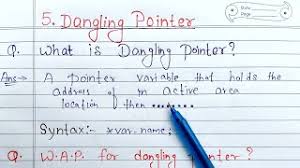 5. Dangling Pointer
Q. What is Dangling pointer?
Ans→ A pointer variable that holds the
address of in active area
location of then ........
Syntax:- *var.name;
Q. W.A.P. for dangling pointer?